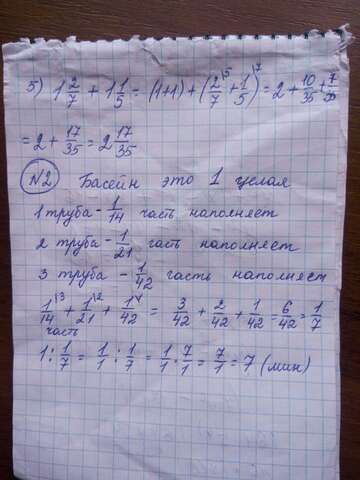 5) 1 2/7 + 1 1/5 = (1+1) + (2/7\5 + 1/5\7) = 2 + 10/35 + 7/35
= 2 + 17/35 = 2 17/35
N2 Басейн это 1 целая
1 труба - 1/14 часть наполняет
2 труба - 1/21 часть наполняет
3 труба - 1/42 часть наполняет
1/14\3 + 1/21\2 + 1/42\1 = 3/42 + 2/42 + 1/42 = 6/42 = 1/7
часть
1 : 1/7 = 1/1 : 1/7 = 1/1 · 7/1 = 7/1 = 7 (мин)